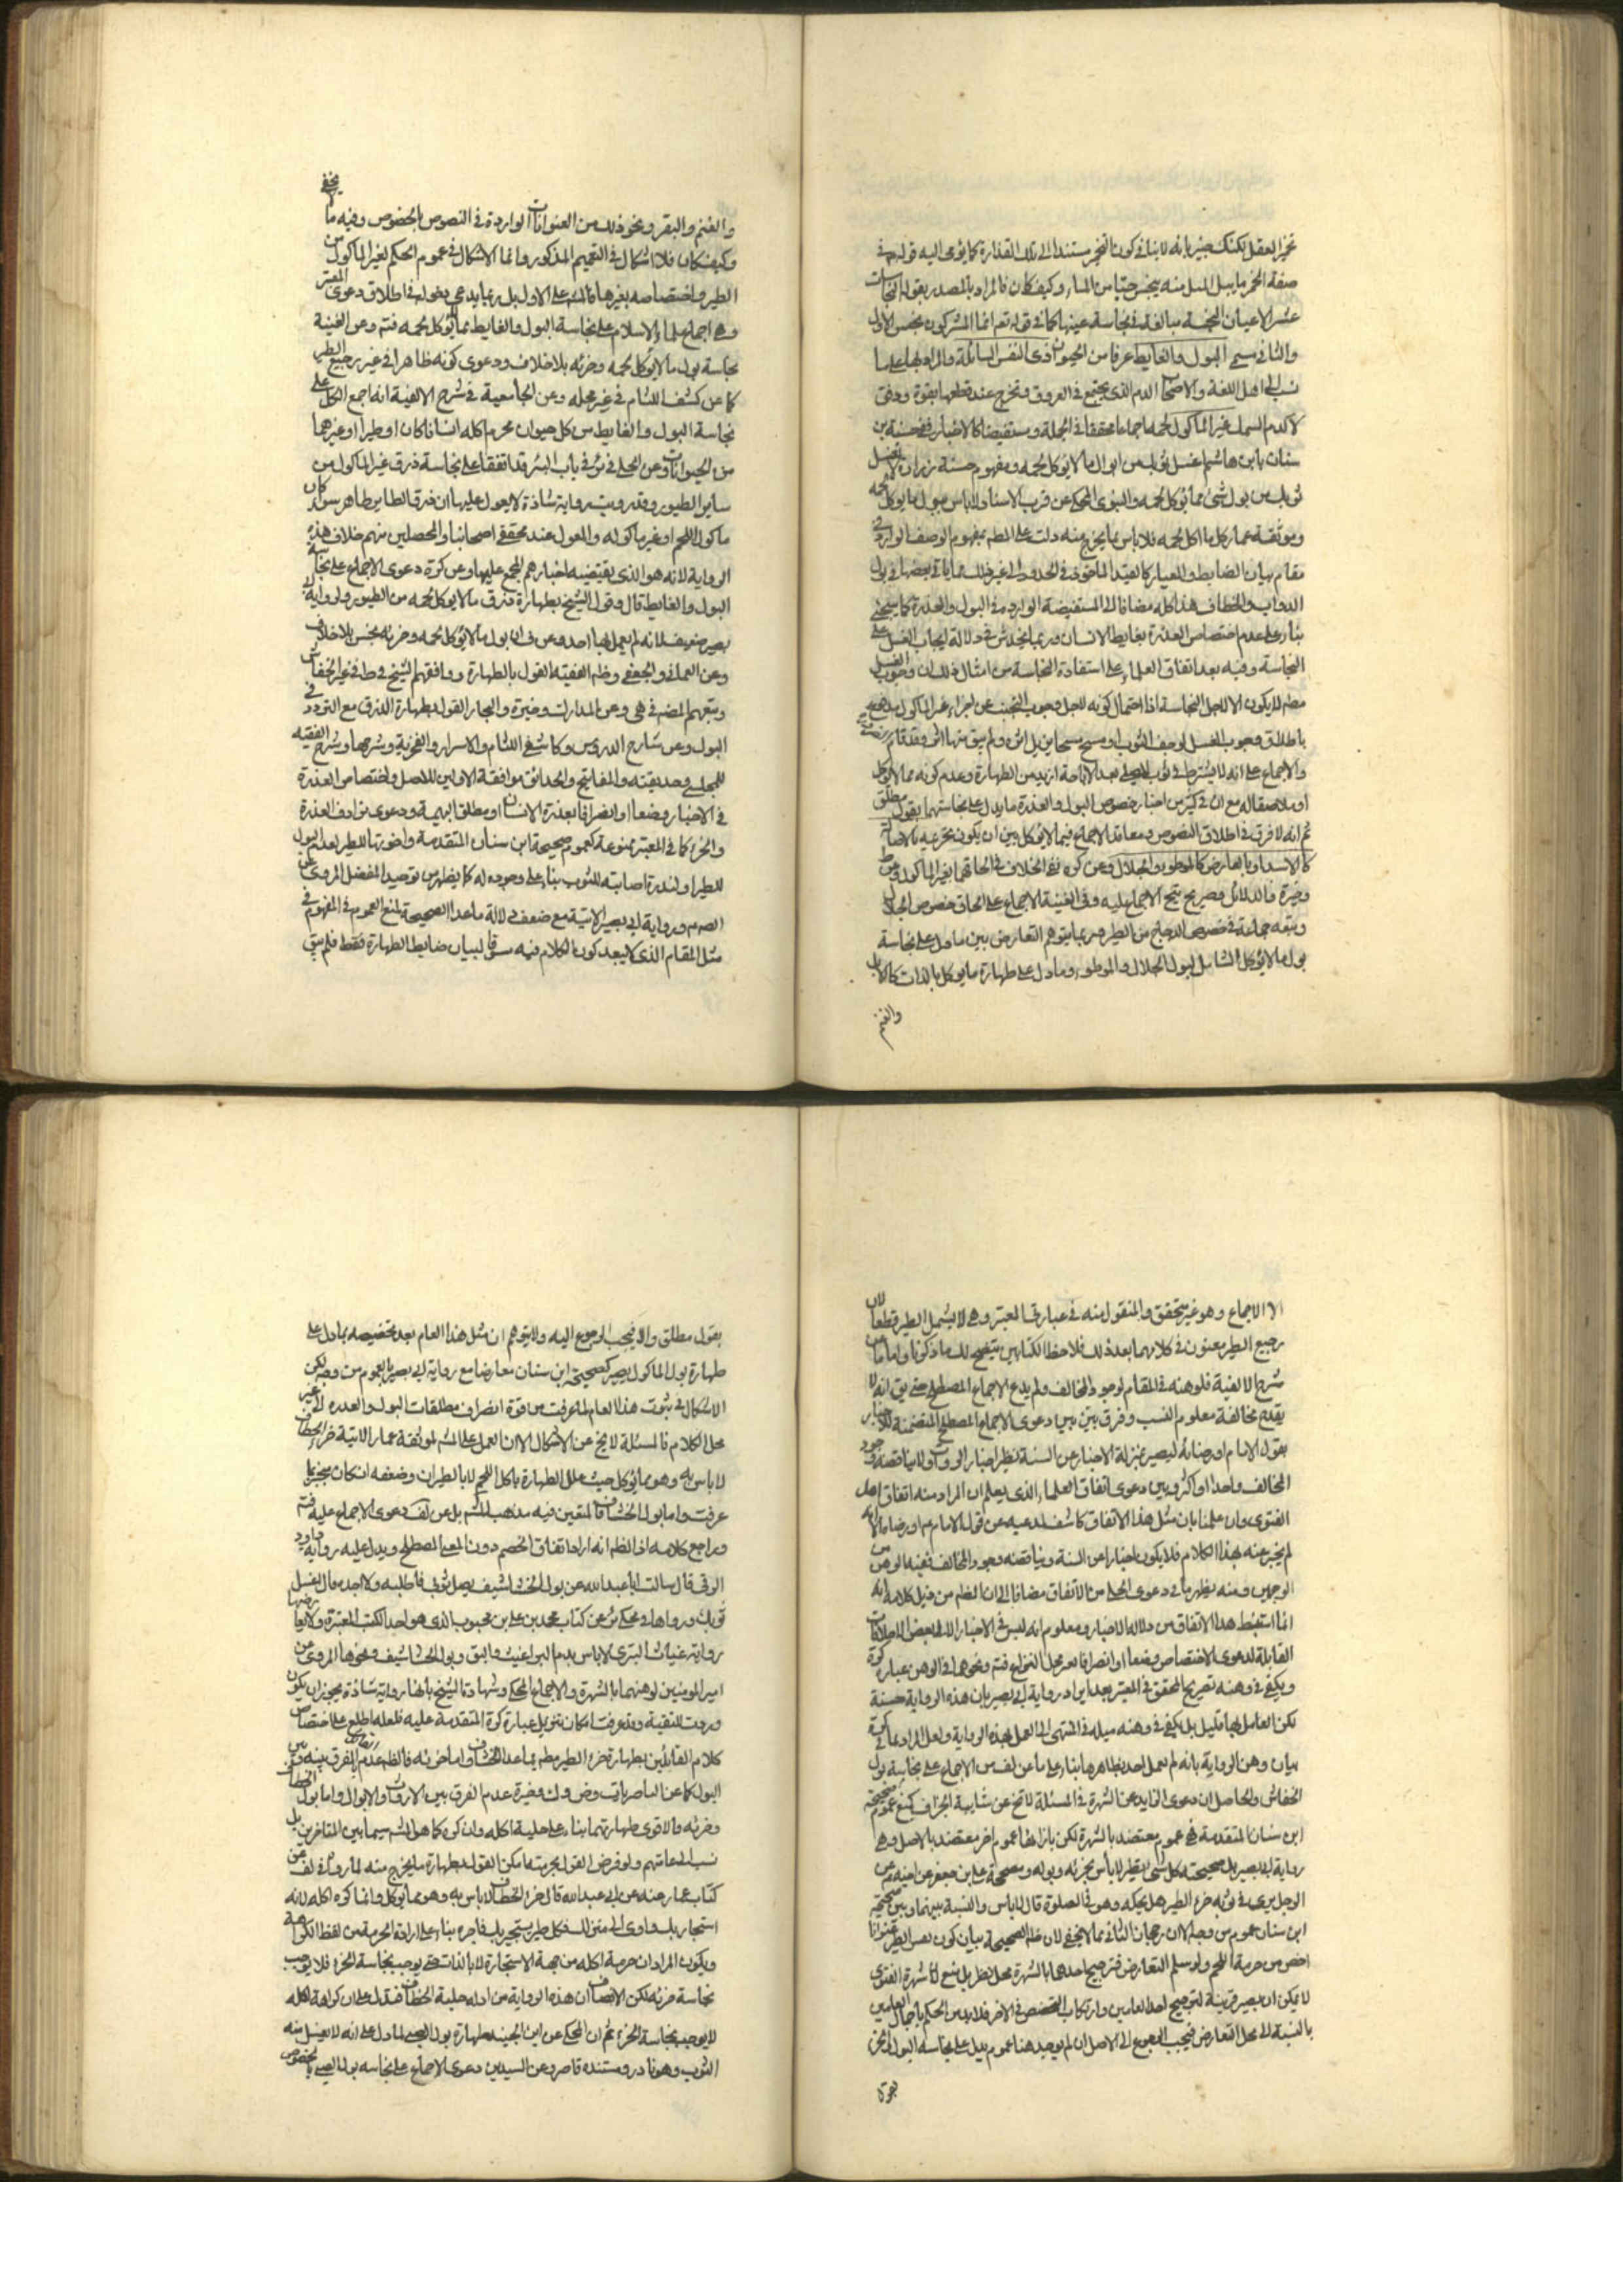 والثاني سمي البول والغايط عرفا من الحيوان ذي النفس السائلة والمراد بها على ما
نسب الى اهل اللغة والاصحاب الدم الذي يجتمع في العروق وتخرج عند قطعها بقوة ودفق
سنان يا ابن هاشم اغسل ثوبك من ابوال ما لا يؤكل لحمه ومفهوم حسنة زرارة لا تغسل
ثوبك من بول شئ مما يؤكل لحمه والنبوي المحكي عن قرب الاسناد لا باس ببول ما يؤكل لحمه
وموثقة عمار كل ما اكل لحمه فلا باس بما يخرج منه دلت على المط بمفهوم الوصف الوارد في
مقام بيان الضابط والمعيار كالقيد الماخوذ في الحدود الى غير ذلك مما ياتي بعضها في بول
الدواب والخطاف هذا كله مضافا الى المستفيضة الواردة في البول والعذرة كما سيجئ
بناء على عدم اختصاص العذرة بغايط الانسان وربما يخدش في دلالة ايجاب الغسل على
النجاسة وفيه بعد اتفاق العلماء على استفادة النجاسة من امثال ذلك ان وجوب الغسل
ثم انه لا فرق في اطلاق النصوص ومعاقد الاجماع فيما لا يؤكل بين ان يكون محرم عليه بالاصالة
كالاسد او بالعارض كالموطوء والجلال وعن كره نفي الخلاف في الحاقهما بغير الماكول وعن
وتبعه جماعة في خصوص الدجاج من الطير وربما يتوهم التعارض بين ما دل على نجاسة
بول ما لا يؤكل الشامل لبول الجلال والموطوء وما دل على طهارة ما يؤكل بالذات كالابل
والغنم
والغنم والبقر ونحو ذلك من العنوانات الواردة في النصوص بالخصوص وفيه ما لا يخفى
وكيف كان فلا اشكال في التعميم المذكور وانما الاشكال في عموم الحكم لغير الماكول من
وهي اجماع علماء الاسلام على نجاسة البول والغايط مما لا يؤكل لحمه فتم وعن الغنية
نجاسة بول ما لا يؤكل لحمه وخرئه بلا خلاف ودعوى كونه ظاهرا في غير رجيع الطير
كما عن كشف اللثام في غير محله وعن الجامعية في شرح الالفية انه اجمع الكل على
نجاسة البول والغايط من كل حيوان محرم اكله انسانا كان او طيرا او غيرهما
من الحيوانات وعن الحلي في ئر في باب البئر قد اتفقنا على نجاسة ذرق غير الماكول من
ساير الطيور وقد رويت رواية شاذة لا يعول عليها ان ذرق الطاير طاهر سواء كان
ماكول اللحم او غير ماكوله والمعول عند محققي اصحابنا والمحصلين منهم خلاف هذه
الرواية لانه هو الذي يقتضيه اخبارهم المجمع عليها وعن كرة دعوى الاجماع على نجاسة
البول والغايط قال وقول الشيخ بطهارة ذرق ما لا يؤكل لحمه من الطيور ولرواية ابي
بصير ضعيف لانه لم يعمل بها احد وعن ف ان بول ما لا يؤكل لحمه وخرئه نجس بلا خلاف
وعن العماني والجعفي وظ الفقيه القول بالطهارة ووافقهم الشيخ في ط في غير الخفاش
البول وعن شارح الدروس وكاشف اللثام والاسرار والفخرية وشرحها وشرح الفقيه
للمجلسي وحديقته والمفاتيح والحدائق موافقة الاولين للاصل واختصاص العذرة
في الاخبار وضعا او انصرافا بعذرة الانسان او مطلق البهيمة ودعوى ترادف العذرة
والخرء كما في المعتبر ممنوعة كعموم صحيحة ابن سنان المتقدمة واخوتها للطير لعدم البول
للطير او لندرة اصابته للثوب بناء على وجوده له كما يظهر من توحيد المفضل المروي عن
الصم ورواية ابي بصير الاتية مع ضعف دلالة ما عدا الصحيحة لمنع العموم في المفهوم في
مثل المقام الذي لا يبعد كون الكلام فيه مسوقا لبيان ضابط الطهارة فقط فلم يبق
الا الاجماع وهو غير متحقق والمنقول منه في عبارة المعتبر وهي لا يشمل الطير قطعا لان
رجيع الطير معنون في كلامهما بعد ذلك فلاحظ الكتابين يتضح لك ما ذكرنا واما ما عن
شرح الالفية فلوهنه في المقام لوجود المخالف ولم يدع الاجماع المصطلح حتى يق انه لا
يقدح مخالفة معلوم النسب وفرق بين بين دعوى الاجماع المصطلح المتضمنة للاخبار
بقول الامام او رضائه ليصير بمنزلة الاخبار عن السنة نظير اخبار الرواة ولا يناقضه وجود
المخالف واحدا او اكثر وبين دعوى اتفاق العلماء الذي يعلم ان المراد منه اتفاق اهل
الفتوى وان علمنا بان مثل هذا الاتفاق كاشف لمدعيه عن قول الامام عم او رضاه الا انه
لم يخبر عنه بهذا الكلام فلا يكون اخبارا عن السنة ويناقضه وجود المخالف ففيه الوهن من
الوجهين ومنه يظهر ما في دعوى الحلي من الاتفاق مضافا الى ان الظم من ذيل كلامه انه
انما استنبط هذا الاتفاق من دلالة الاخبار ومعلوم انه ليس في الاخبار الا بعض الاطلاقات
القابلة لدعوى الاختصاص وضعا او انصرافا بغير محل النزاع فتم ونحوها في الوهن عبارة كرة
ويكفي في وهنه تصريح المحقق في المعتبر بعد ايراد رواية ابي بصير بان هذه الرواية حسنة
لكن العامل بها قليل بل يكفي في وهنه ميله في المنتهى الى العمل بهذه الرواية ولعل المراد بما في كرة
بيان وهن الرواية بانه لم يعمل احد بظاهرها بناء على ما عن لف من الاجماع على نجاسة بول
الخفاش والحاصل ان دعوى الزايد عن الشهرة في المسئلة لا تخ عن شايبة الجزاف كمنع عموم صحيحة
ابن سنان المتقدمة فهي عموم معتضد بالشهرة لكن بازائها عموم اخر معتضد بالاصل وهي
رواية ابي بصير بل صحيحته كل شئ يطير لا بأس بخرئه وبوله ومصححة علي بن جعفر عن اخيه عم عن
الرجل يرى في ثوبه خرء الطير هل يحكه وهو في الصلوة قال لا باس والنسبة بينهما وبين صحيحة
ابن سنان عموم من وجه الا ان رجحان الثاني مما لا يخفى لان ظ الصحيحة بيان كون نفس الطير عنوانا
اخص من حرمة اللحم ولو سلم التعارض فترجيح احدهما بالشهرة محل نظر بل منع لان شهرة الفتوى
لا يمكن ان يصير قرينة لترجيح احد العامين وارتكاب التخصيص في الاخر فلا بد من الحكم باجمال العامين
بالنسبة الى محل التعارض فيجب الرجوع الى الاصل ان لم يوجد هنا عموم يدل على نجاسة البول والخرء
بقول مطلق والا فيجب الرجوع اليه ولا يتوهم ان مثل هذا العام بعد تخصيصه بما دل على
طهارة بول الماكول يصير كصحيحة ابن سنان معارضا مع رواية ابي بصير بالعموم من وجه لكن
الاشكال في ثبوت هذا العام لما عرفت من قوة انصراف مطلقات البول والعذرة الى غير
محل الكلام فالمسئلة لا يخ عن الاشكال الا ان العمل على المشهور لموثقة عمار الاتية خرء الخطاف
لا باس به وهو مما يؤكل حيث علل الطهارة باكل اللحم لا بالطيران وضعفه ان كان منجبرا بما
عرفت واما بول الخشاف فالمتعين فيه مذهب المشهور بل عن لف دعوى الاجماع عليه فتم
وراجع كلامه اذ الظم انه اراد اتفاق الخصم دون المعنى المصطلح ويدل عليه رواية داود
الرقي قال سالت ابا عبد الله عن بول الخشاشيف يصيب ثوبي فاطلبه ولا اجده قال اغسل
ثوبك ورواها في محكي ئر عن كتاب محمد بن علي بن محبوب الذي هو احد الكتب المعتبرة ولا يعارضها
رواية غياث البتري لا باس بدم البراغيث والبق وبول الخشاشيف ونحوها المروي عن
امير المومنين لوهنهما بالشهرة والاجماع المحكي وشهادة الشيخ بانها رواية شاذة يجوز ان يكون
وردت للتقية وقد عرفت امكان تنزيل عبارة كرة المتقدمة عليه فلعله اطلع على اختصاص
كلام القائلين بطهارة خرء الطير مطم بما عدا الخشاف واما خرئه فالظم عدم الفرق بينه وبين
وخرئه فالاقوى طهارتهما بناء على حلية اكله وان كره كما هو المشهور سيما بين المتاخرين بل
نسب الى عامتهم ولو فرض القول بحرمته امكن القول بطهارة ما يخرج منه لما رواه في لف عن
كتاب عمار عنه عن ابي عبد الله قال خرء الخطاف لا باس به وهو مما يؤكل وانما كره اكله لانه
استجار بك واوى الى منزلك وكل طير يستجير بك فاجره بناء على ارادة الحرمة من لفظ الكراهة
ويكون المراد ان حرمة اكله من جهة الاستجارة لا بالذات حتى يوجب نجاسة الخرء فلا يوجب
نجاسة خرئه لكن الانصاف ان هذه الرواية من ادلة حلية الخطاف فتدل على ان كراهة اكله
لا يوجب نجاسة الخرء ثم ان المحكي عن ابن الجنيد طهارة بول الصبي لما دل على انه لا يغسل منه
الثوب وهو نادر ومستنده قاصر وعن السيد دعوى الاجماع على نجاسة بول الصبي بالخصوص